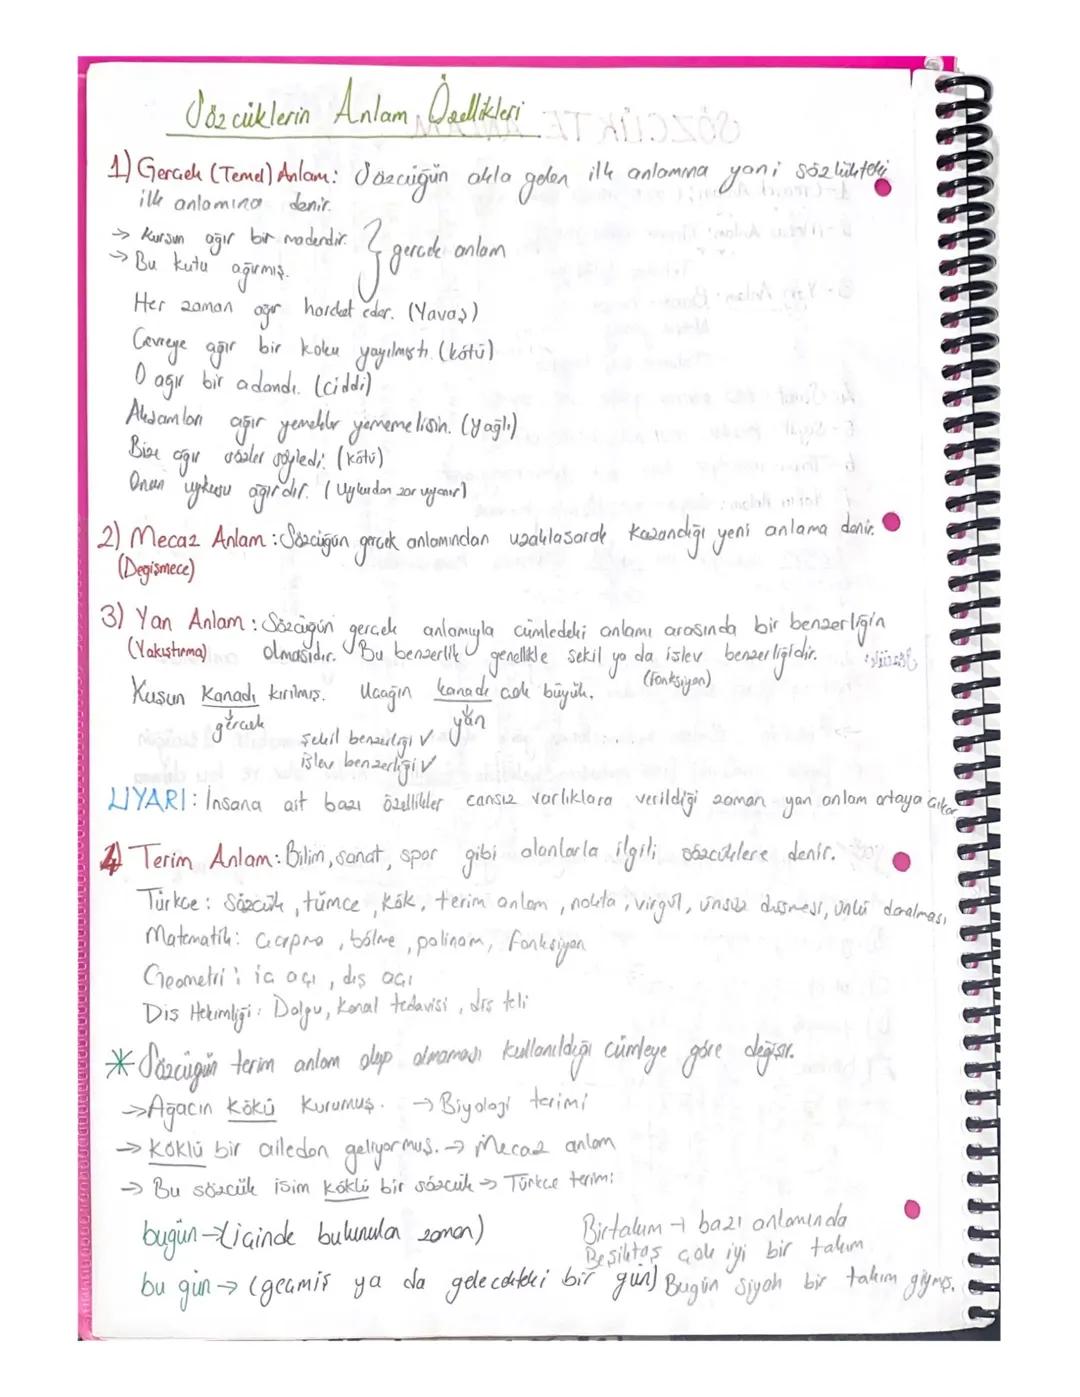 Sözcüklerin Anlam Özellikleri
1) Gerçek (Temel) Anlam: Sözcüğün akla gelen ilk anlamına yani sözlükteki
ilk anlamına denir.
→ Kurşun ağır bir madendir.
→ Bu kutu ağırmış.
} gerçek anlam
Her zaman ağır hareket eder. (Yavaş)
Çevreye ağır bir koku yayılmıştı. (kötü)
O ağır bir adamdı. (ciddi)
Akşamları ağır yemekler yememelisin. (yağlı)
Bize ağır sözler söyledi. (kötü)
Onun uykusu ağırdır. (Uykudan zor uyanır)
2) Mecaz Anlam : Sözcüğün gerçek anlamından uzaklaşarak kazandığı yeni anlama denir.
(Değişmece)
3) Yan Anlam : Sözcüğün gerçek anlamıyla cümledeki anlamı arasında bir benzerliğin
(Yakıştırma) olmasıdır. Bu benzerlik genellikle şekil ya da işlev benzerliğidir.
(fonksiyon)
Kuşun Kanadı kırılmış. Uçağın kanadı çok büyük.
gerçek yan
şekil benzerliği √
işlev benzerliği √
UYARI : İnsana ait bazı özellikler cansız varlıklara verildiği zaman yan anlam ortaya çıkar
4) Terim Anlam: Bilim, sanat, spor gibi alanlarla ilgili sözcüklere denir.
Türkçe : Sözcük, tümce, kök, terim anlam, nokta, virgül, ünsüz düşmesi, ünlü daralması
Matematik: Çarpma, bölme, polinom, fonksiyon
Geometri : iç açı, dış açı
Diş Hekimliği : Dolgu, kanal tedavisi, diş teli
* Sözcüğün terim anlam olup olmaması kullanıldığı cümleye göre değişir.
→ Ağacın kökü kurumuş. → Biyoloji terimi
→ Köklü bir aileden geliyormuş. → Mecaz anlam
→ Bu sözcük isim köklü bir sözcük → Türkçe terimi
bugün → (içinde bulunulan zaman)
Birtakım → bazı anlamında
Beşiktaş çok iyi bir takım
bu gün → (geçmiş ya da gelecekteki bir gün)
Bugün siyah bir takım giymiş.